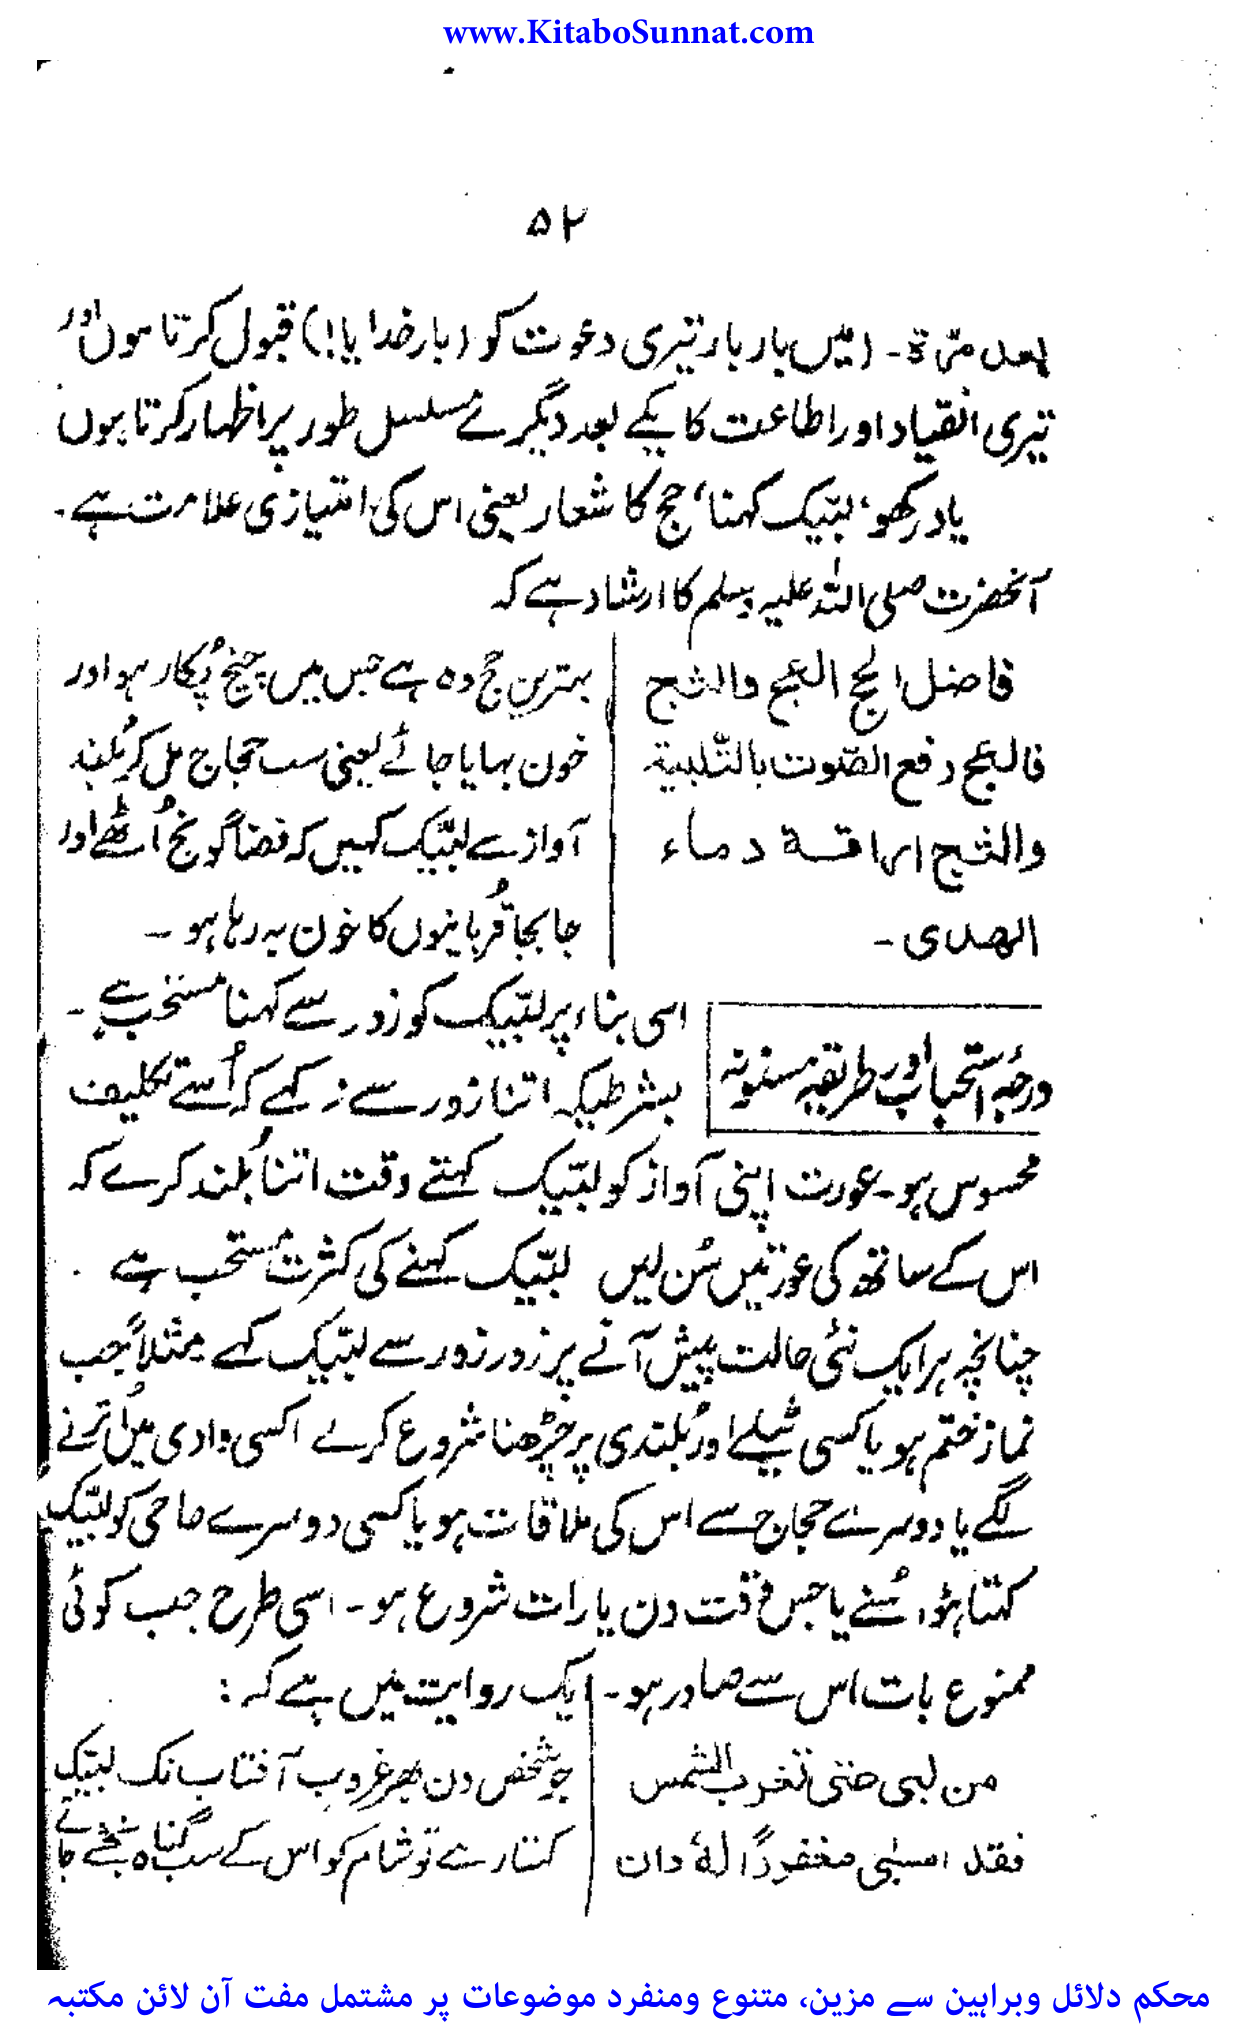 www.KitaboSunnat.com
۵۲
بعد مرّة۔ (میں بار بار تیری دعوت کو (بار خدایا!) قبول کرتا ہوں اور
تیری انقیاد اور اطاعت کا یکے بعد دیگرے مسلسل طور پر اظہار کرتا ہوں
یاد رکھو، لبّیک کہنا، حج کا شعار یعنی اس کی امتیازی علامت ہے۔
آنحضرت صلی اللہ علیہ وسلم کا ارشاد ہے کہ
فاضل الحج العج والثج
فالعج رفع الصّوت بالتّلبیة
والثج اراقة دماء
الهدی۔
بہترین حج وہ ہے جس میں چیخ پُکار ہو اور
خون بہایا جائے یعنی سب حجاج مل کر بُلند
آواز سے لبّیک کہیں کہ فضا گونج اُٹھے اور
جا بجا قُربانیوں کا خون بہ رہا ہو۔
درجۂ استحباب اور طریقہ مسنونہ
اسی بناء پر لبّیک کو زور سے کہنا مستحب ہے۔
بشرطیکہ اتنا زور سے نہ کہے کہ اُسے تکلیف
محسوس ہو۔ عورت اپنی آواز کو لبّیک کہتے وقت اتنا بُلند کرے کہ
اس کے ساتھ کی عورتیں سُن لیں لبّیک کہنے کی کثرت مستحب ہے۔
چنانچہ ہر ایک نئی حالت پیش آنے پر زور زور سے لبّیک کہے مثلاً جب
نماز ختم ہو یا کسی ٹیلے اور بُلندی پر چڑھنا شروع کرے اکسی وادی میں اُترنے
لگے یا دوسرے حجاج سے اس کی ملاقات ہو یا کسی دوسرے حاجی کو لبّیک
کہتا ہُوا سُنے یا جس وقت دن یا رات شروع ہو۔ اسی طرح جب کوئی
ممنوع بات اس سے صادر ہو۔ ایک روایت میں ہے کہ:
من لبی حتی تغرب الشمس
فقد امسٰی مغفورًا لهٗ وان
جو شخص دن بھر غروب آفتاب تک لبّیک
کہتا رہے تو شام کو اس کے سب گناہ بخشے جائے
محکم دلائل وبراہین سے مزین، متنوع ومنفرد موضوعات پر مشتمل مفت آن لائن مکتبہ